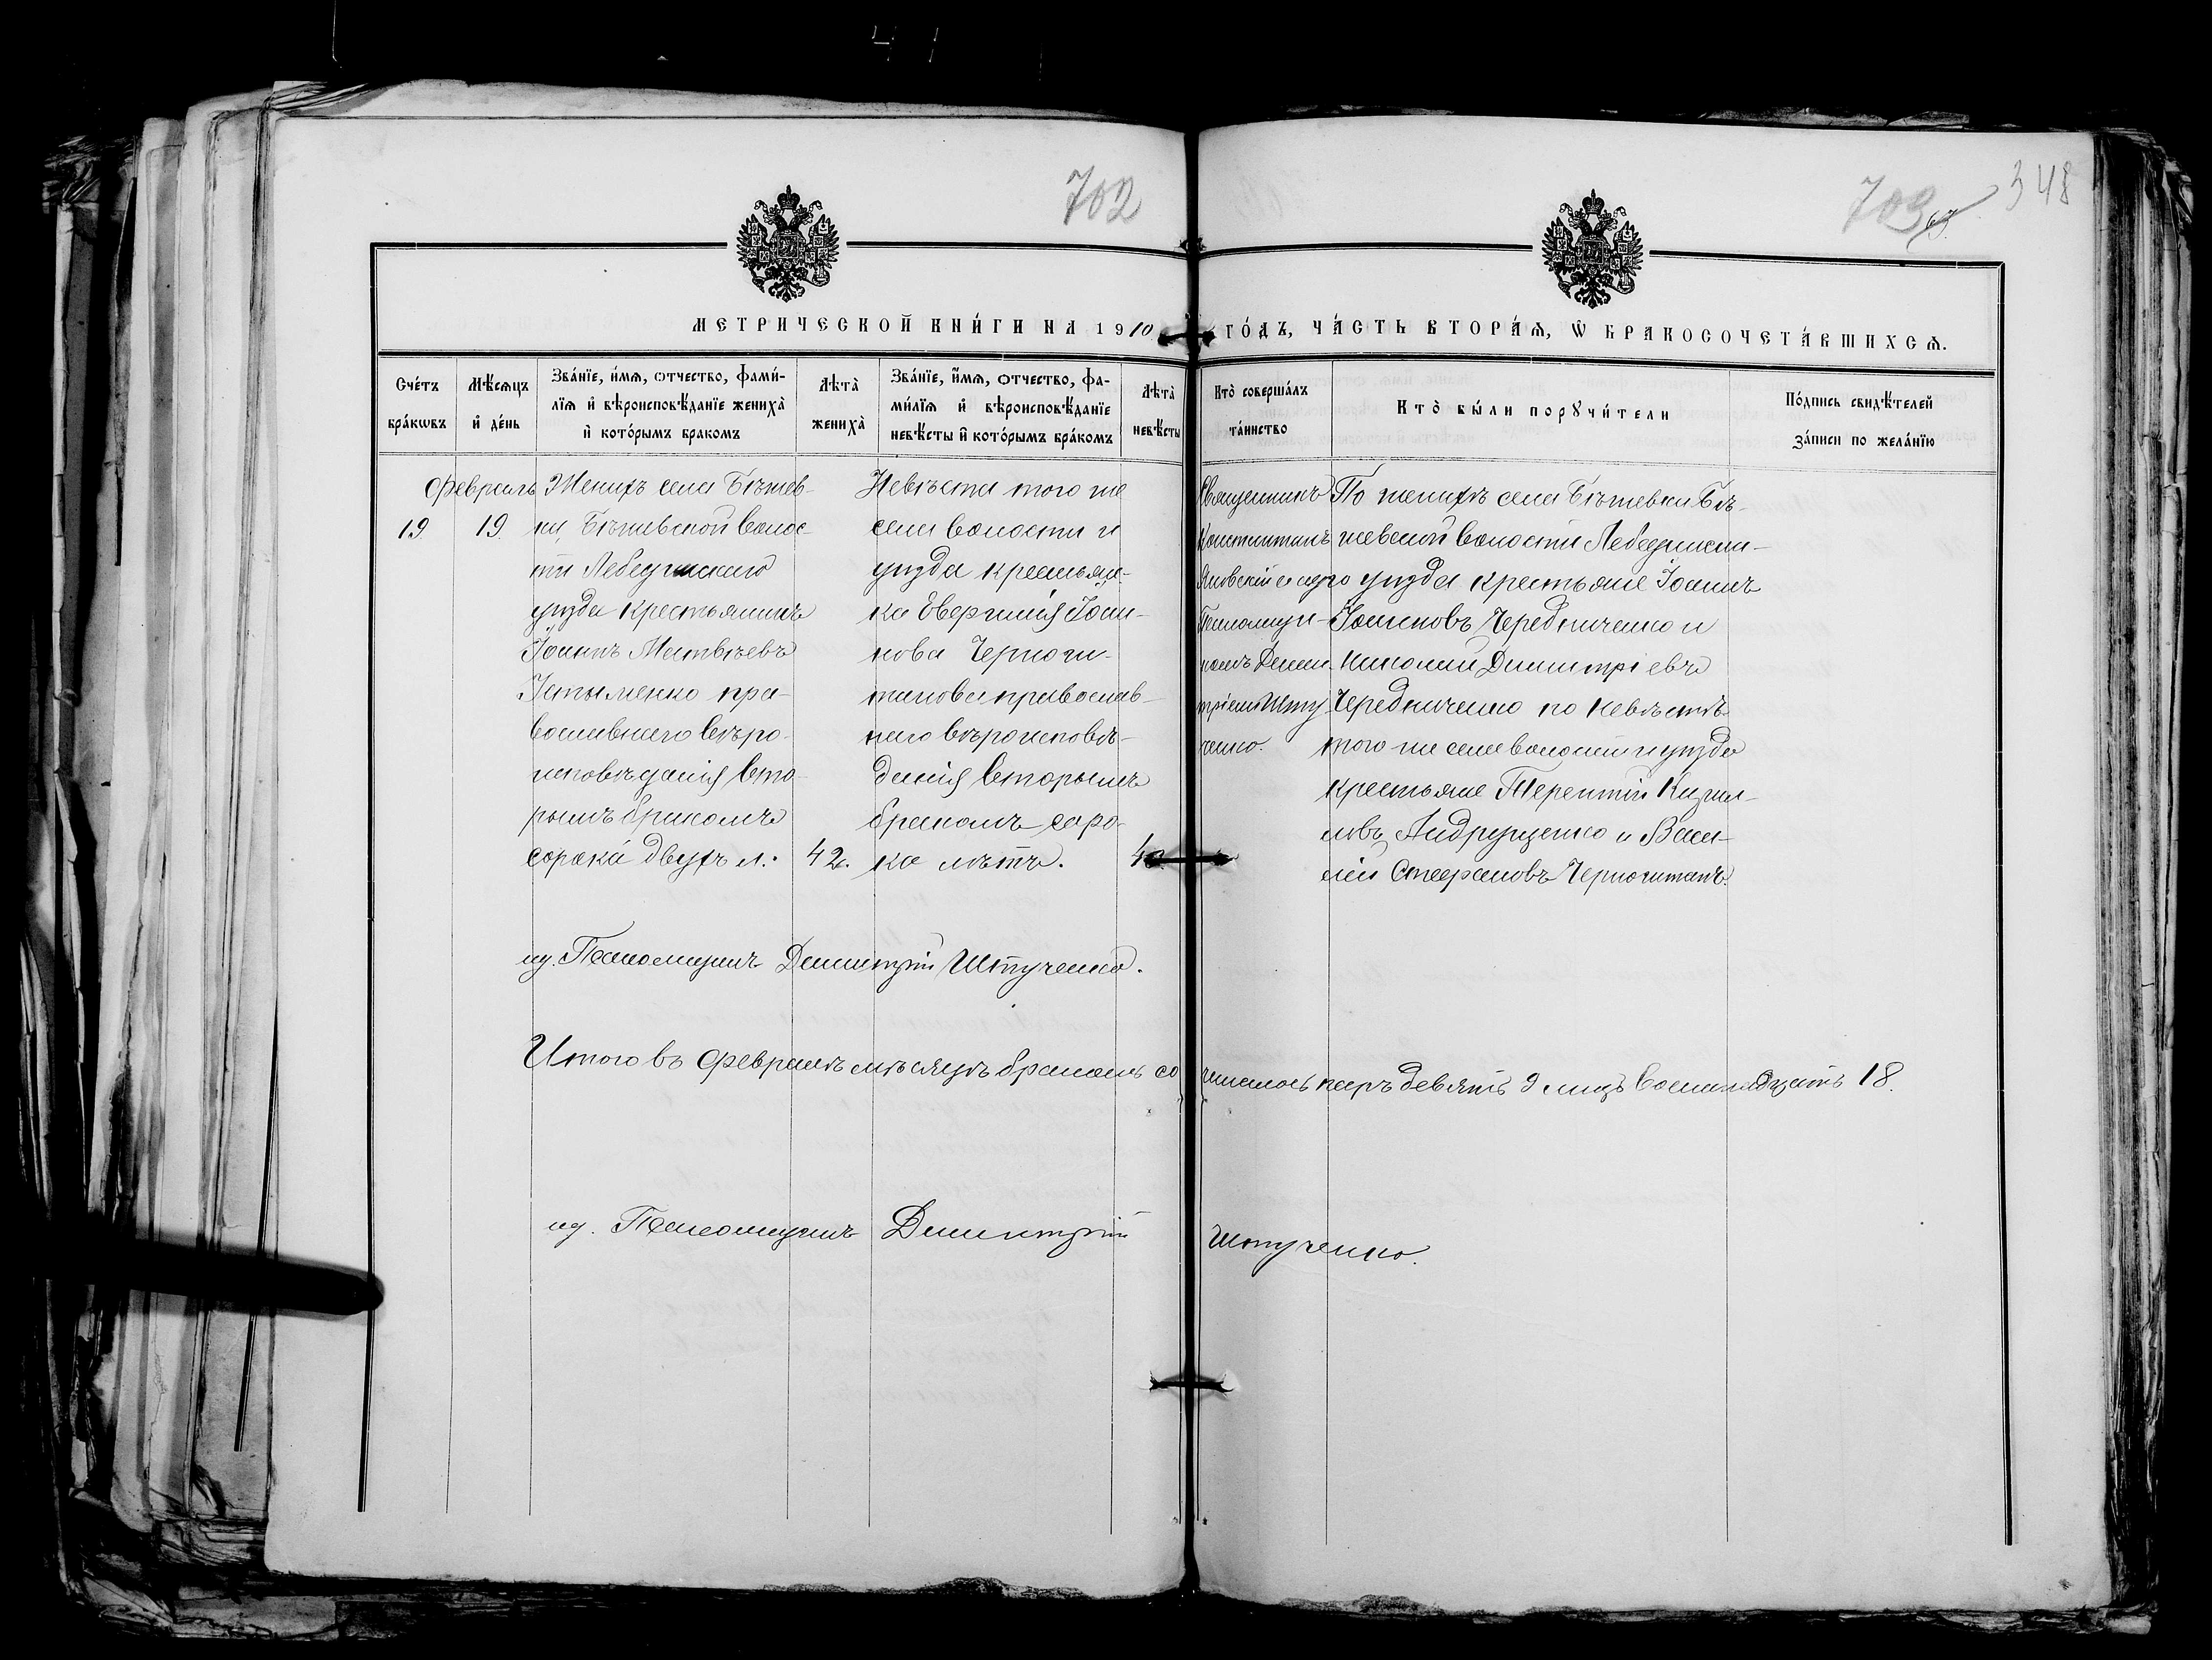 702
703
348
МЕТРИЧЕСКОЙ КНИ́ГИ НА 1910
ГО́ДЪ, ЧА́СТЬ ВТОРА́Ѧ, Ѡ҆ БРАКОСОЧЕТА́ВШИХСѦ.
Сче́тъ бра́кѡвъ
Мѣ́сѧцъ и҆ де́нь
Зва́нїе, и҆́мѧ, ѻтчество, фами́-
лїѧ и҆ вѣроисповѣ́данїе жениха̀
и҆ кото́рымъ бракомъ
Лѣта̀ жениха̀
Зва́нїе, и҆́мѧ, ѻтчество, фа-
ми́лїѧ и҆ вѣроисповѣ́данїе
невѣ́сты и҆ кото́рымъ бра́комъ
Лѣта̀ невѣ́сты
Кто̀ соверша́лъ та́инство
Кто̀ бы́ли порꙋчи́тели
По́дпись свидѣ́телей
за́писи по жела́нїю
Февраль
19.
19.
Женихъ села Бѣжев-
ки, Бѣжевской волос-
ти Лебединскаго
уѣзда крестьянинъ
Іоаннъ Матвѣевъ
Устименко пра-
вославнаго вѣро-
исповѣданія вто-
рымъ бракомъ
сорока двухъ л.
42.
Невѣста того же
села волости и
уѣзда крестьян-
ка Евгенія Іоан-
нова Черноги-
танова православ-
наго вѣроисповѣ-
данія вторымъ
бракомъ соро-
ка лѣтъ.
40.
Священникъ
Константинъ
Яновскій съ
Псаломщи-
комъ Дими-
тріемъ Шту-
ченко.
По женихѣ села Бѣжевки Бѣ-
жевской волости Лебединска-
го уѣзда крестьяне Іоаннъ
Іоанновъ Чередниченко и
Николай Димитріевъ
Чередниченко по невѣстѣ
того же села волости и уѣзда
крестьяне Терентій
Андрущенко и Васи-
лій Стефановъ Черногитанъ.
Псаломщикъ Димитрій Штученко.
Итого въ Февралѣ мѣсяцѣ бракомъ со
читалось паръ девять 9 лицъ восемнадцать 18.
Псаломщикъ Димитрій
Штученко.